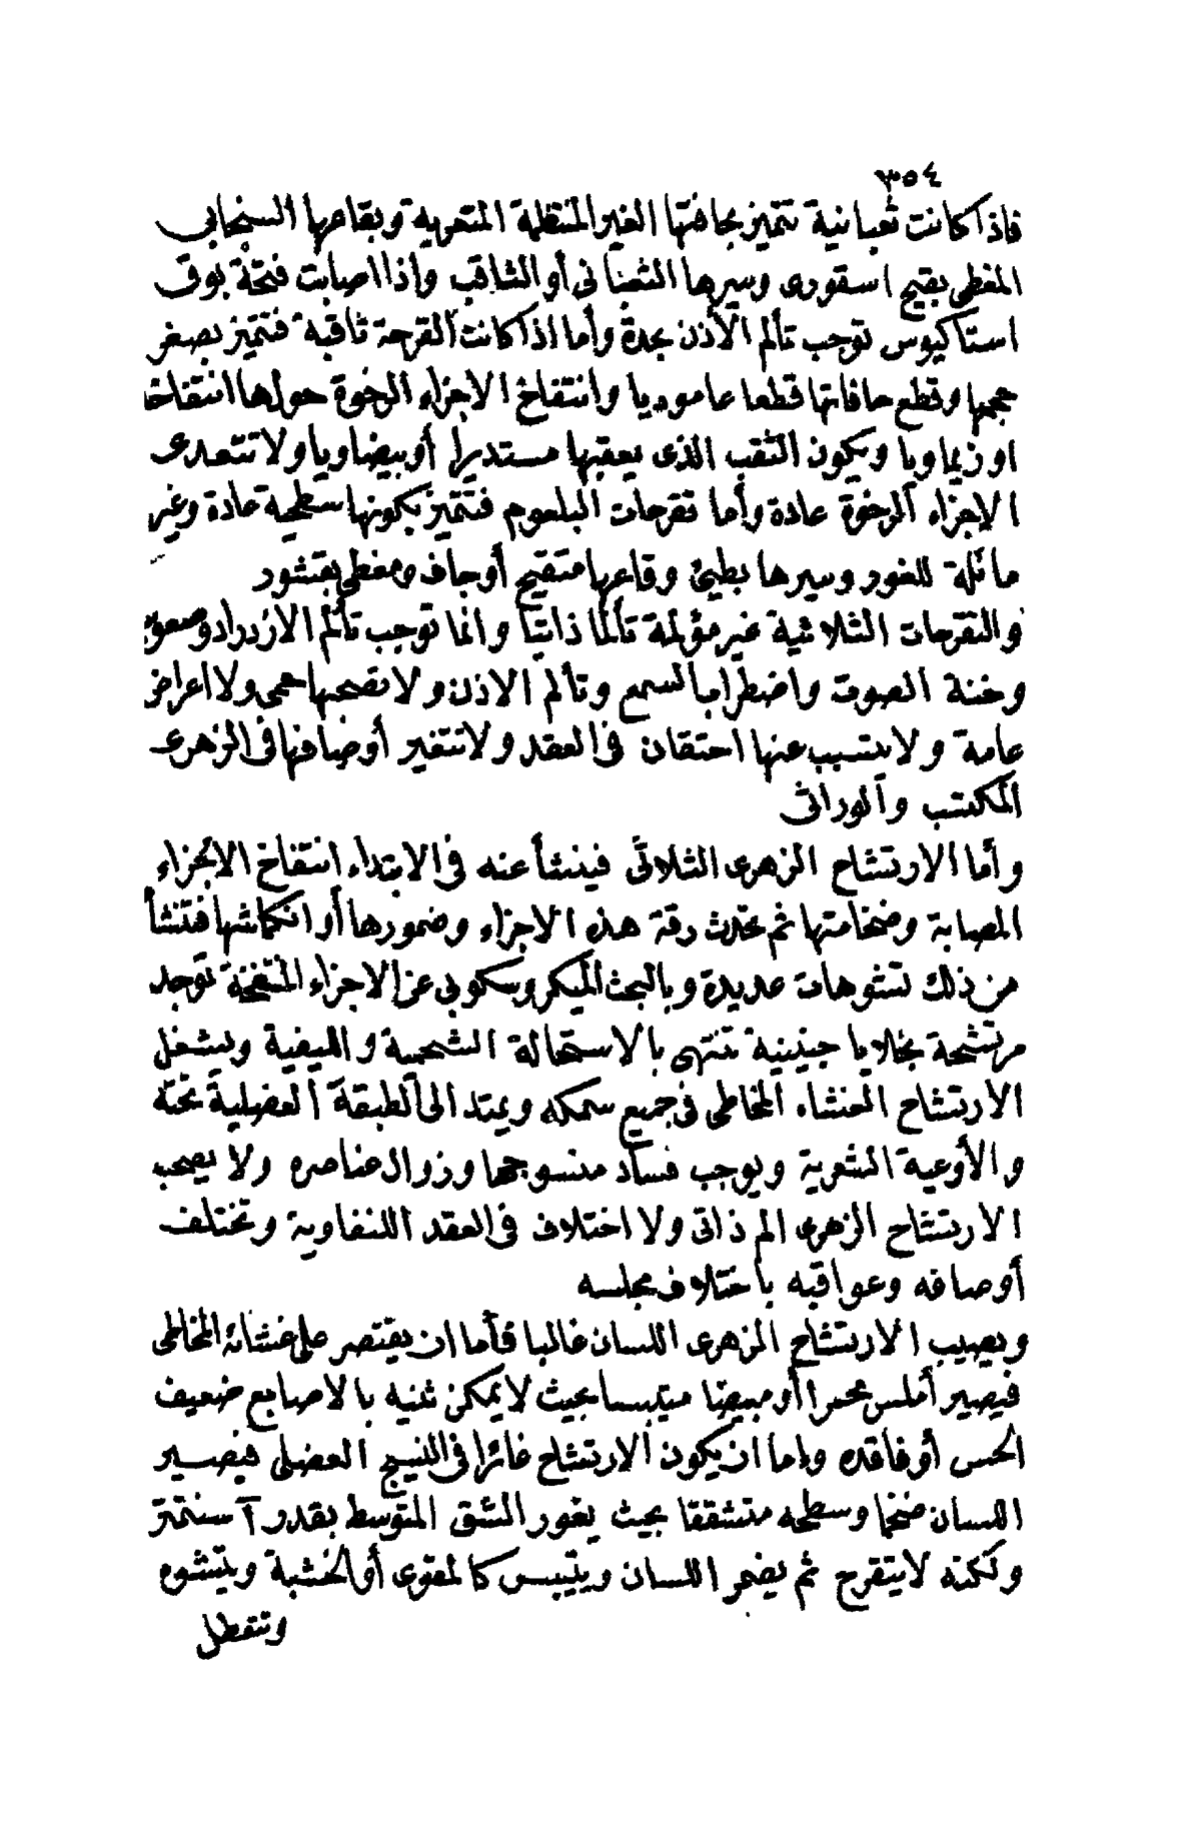 ٣٥٤
فاذا كانت ثعبانية تتميز بحافتها الغير المنتظمة المتعرجة وبقاعها السنجابي
المغطى بقيح اسقورى وسيرها الثعبانى أو الثاقب واذا اصابت فتحة بوق
استاكيوس توجب تألم الأذن بحدة وأما اذا كانت القرحة ثاقبة فتتميز بصغر
حجمها وقطع حافاتها قطعا عاموديا وانتفاخ الاجزاء الرخوة حولها انتفاخا
اوزيماويا ويكون الثقب الذى يعقبها مستديرا أو بيضاويا ولا تتعدى
الاجزاء الرخوة عادة وأما تقرحات البلعوم فتتميز بكونها سطحية عادة وغير
مائلة للغور وسيرها بطيئ وقاعها متقيح أو جاف ومغطى بقشور
والتقرحات الثلاثية غير مؤلمة تألما ذاتيا وانما توجب تألم الازدراد وصعوبة
وخنة الصوت واضطراب السمع وتألم الاذن ولا تصحبها حمى ولا اعراض
عامة ولا يتسبب عنها احتقان فى العقد ولا تتغير أوصافها فى الزهرى
المكتسب والوراثى
وأما الارتشاح الزهرى الثلاثى فينشأ عنه فى الابتداء انتفاخ الاجزاء
المصابة وضخامتها ثم تحدث رقة هذه الاجزاء وضمورها أو انكماشها فتنشأ
من ذلك تشوهات عديدة وبالبحث الميكروسكوبى عن الاجزاء المنتفخة توجد
مرتشحة بخلايا جنينية تنتهى بالاستحالة الشحمية والليفية ويشغل
الارتشاح الغشاء المخاطى فى جميع سمكه ويمتد الى الطبقة العضلية تحته
والأوعية الشعرية ويوجب فساد منسوجها وزوال عناصره ولا يصحب
الارتشاح الزهرى الم ذاتى ولا اختلاف فى العقد اللنفاوية وتختلف
أوصافه وعواقبه باختلاف مجلسه
ويصيب الارتشاح الزهرى اللسان غالبا فأما ان يقتصر على غشائه المخاطى
فيصير أملس محمرا أو مبيضا متيبسا بحيث لا يمكن ثنيه بالاصابع ضعيف
الحس أو فاقده واما ان يكون الارتشاح غائرا فى النسيج العضلى فيصير
اللسان ضخما وسطحه متشققا بحيث يغور الشق المتوسط بقدر آ سنتمتر
ولكنه لا يتقرح ثم يضمر اللسان وييتبس كالمقوى أو الخشبة ويتشوه
وتتعطل